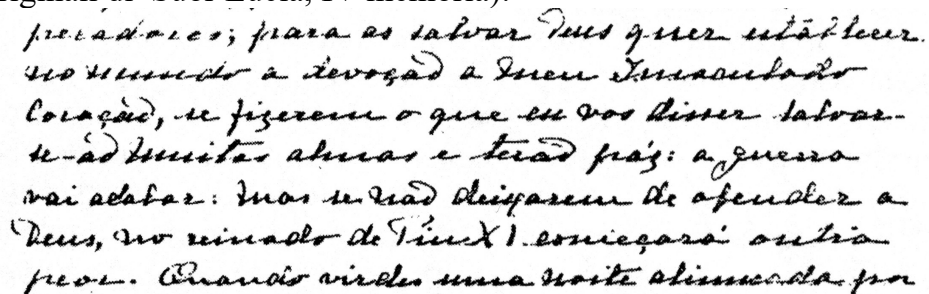 originali di Suor Lucia, IV memoria).
pecadores; para as salvar Deus quer establecer
no mundo a devoção a meu Imaculado
Coração, se fizerem o que eu vos disser salvar-
se-ão muitas almas e terão páz: a guerra
vai acabar: mas se não deixarem de ofender a
Deus, no reinado de Pio XI começará outra
peor. Quando virdes uma noite alumiada por